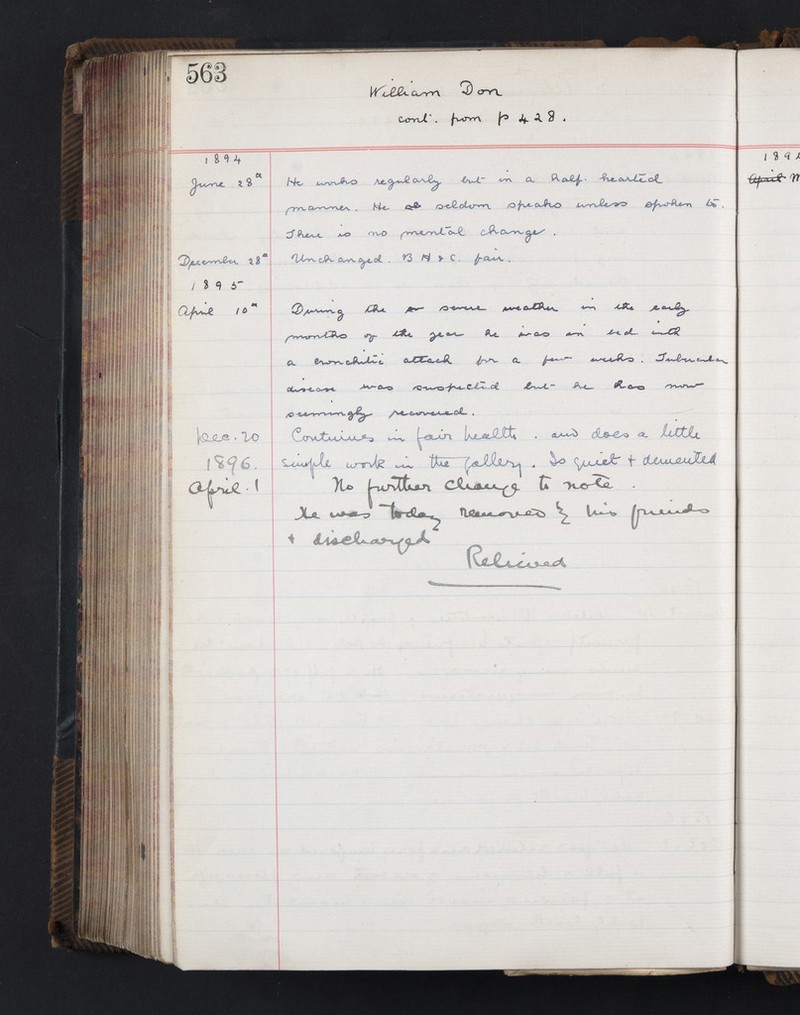 563
William Don
cont. from p 428.
1894
June 28th He works regularly but in a half hearted
manner. He seldom speaks unless spoken to.
There is no mental change.
December 28th Unchanged. B H & C. fair.
1895
April 10th During the severe weather in the early
months of the year he was in bed with
a bronchitic attack for a few weeks. Tubercular
disease was suspected but he has now
seemingly recovered.
Dec. 20 Continues in fair health. and does a little
1896. simple work in the gallery. Is quiet + demented
April. 1 No further change to note.
He was today removed by his friends
+ discharged
Relieved
189
April M